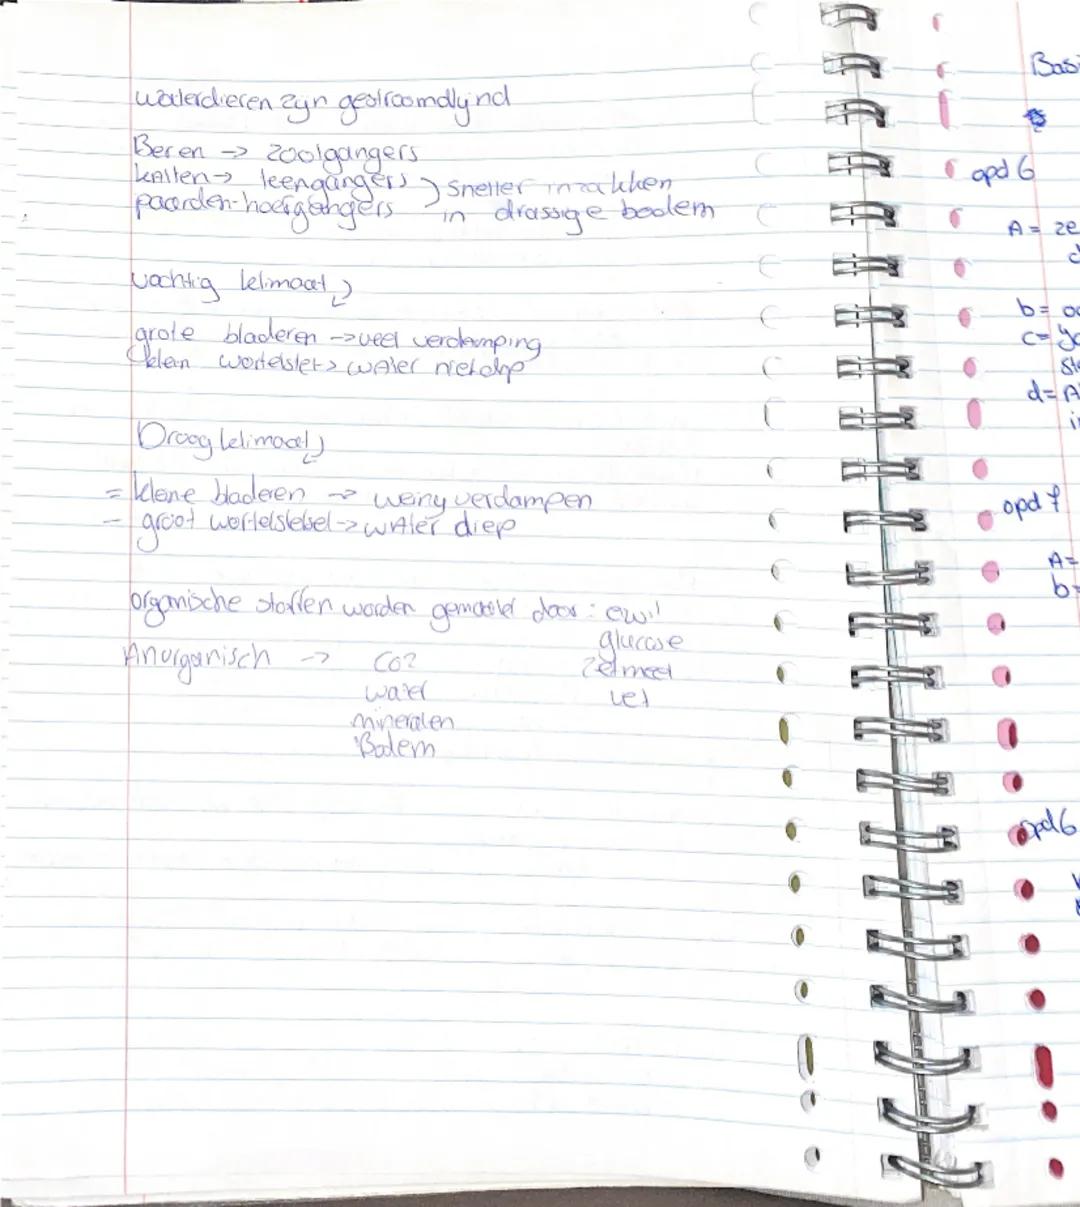 waterdieren zijn gestroomdlijnd
Beren -> zoolgangers
katten -> teengangers ) sneller inzakken
paarden-hoefgangers in drassige bodem
vochtig klimaat
grote bladeren -> veel verdamping
klein wortelstel -> water niet diep
Droog klimaat
= kleine bladeren -> weinig verdampen
- groot wortelstelsel -> water diep
organische stoffen worden gemaakt door : eiwit
glucose
Anorganisch -> CO2 zetmeel
water vet
mineralen
Bodem
Basi
opd 6
A = ze
d
b =
c =
d = A
opd 7
A =
b =
opd 6